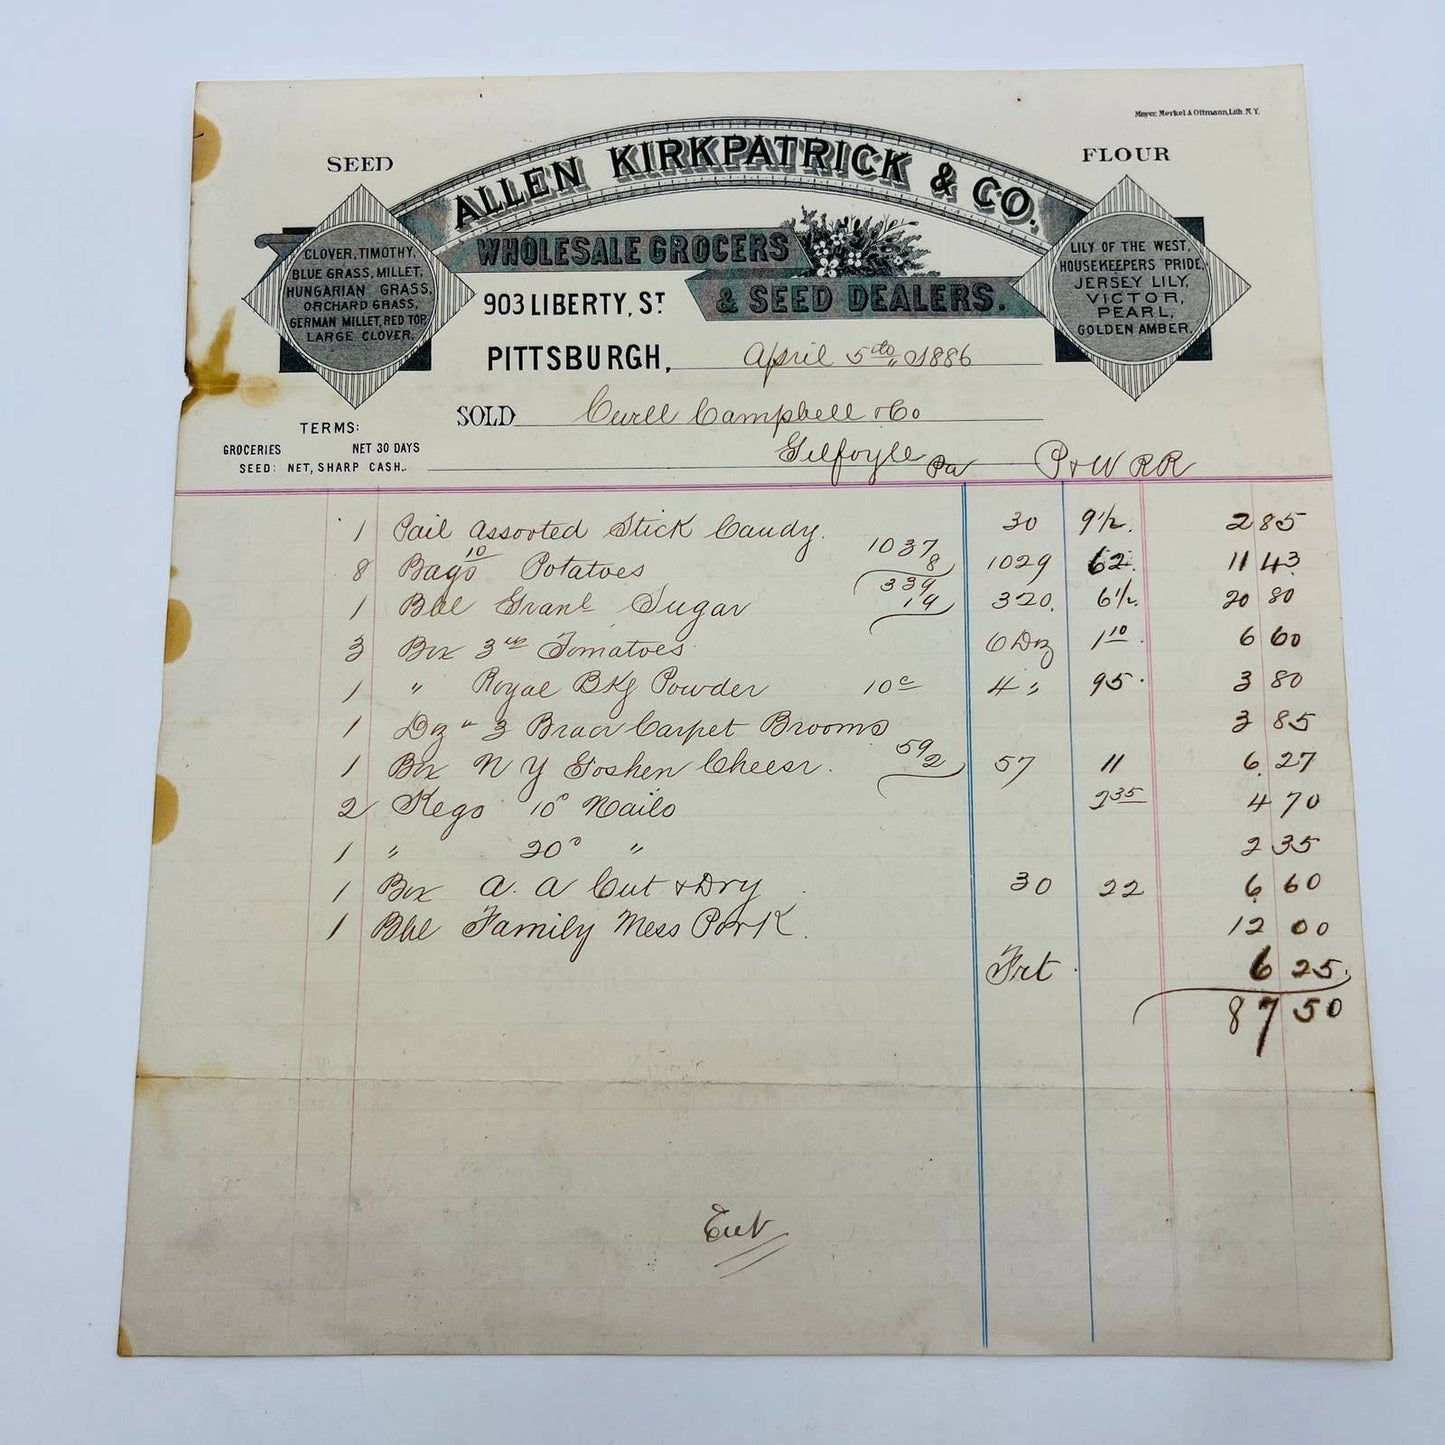 Mayer, Merkel & Ottmann, Lith. N.Y.
SEED
FLOUR
ALLEN KIRKPATRICK & CO.
WHOLESALE GROCERS
& SEED DEALERS.
CLOVER, TIMOTHY,
BLUE GRASS, MILLET,
HUNGARIAN GRASS,
ORCHARD GRASS,
GERMAN MILLET, RED TOP,
LARGE CLOVER.
LILY OF THE WEST,
HOUSEKEEPERS PRIDE,
JERSEY LILY,
VICTOR,
PEARL,
GOLDEN AMBER.
903 LIBERTY, ST
PITTSBURGH, April 5th 1886
SOLD Curll Campbell & Co
Gilfoyle Pa P & W RR
TERMS:
GROCERIES NET 30 DAYS
SEED: NET, SHARP CASH.
1 Pail Assorted Stick Candy. 30 9 1/2. 2 85
8 Bags 10 Potatoes 1037 8 1029 62. 11 43
1 Bbl Granl Sugar 339 19 320. 6 1/2. 20 80
3 Box 3 Tomatoes 6 Dz 1 10. 6 60
1 " Royal BKg Powder 10c 4 " 95. 3 80
1 Dz 3 Carpet Brooms 3 85
1 Box N Y Goshen Cheese. 59 2 57 11 6 27
2 Kegs 10d Nails 2 35 4 70
1 " 20d " 2 35
1 Box A. A Cut & Dry 30 22 6 60
1 Bbl Family Mess Pork. 12 00
Frt 6 25
87 50